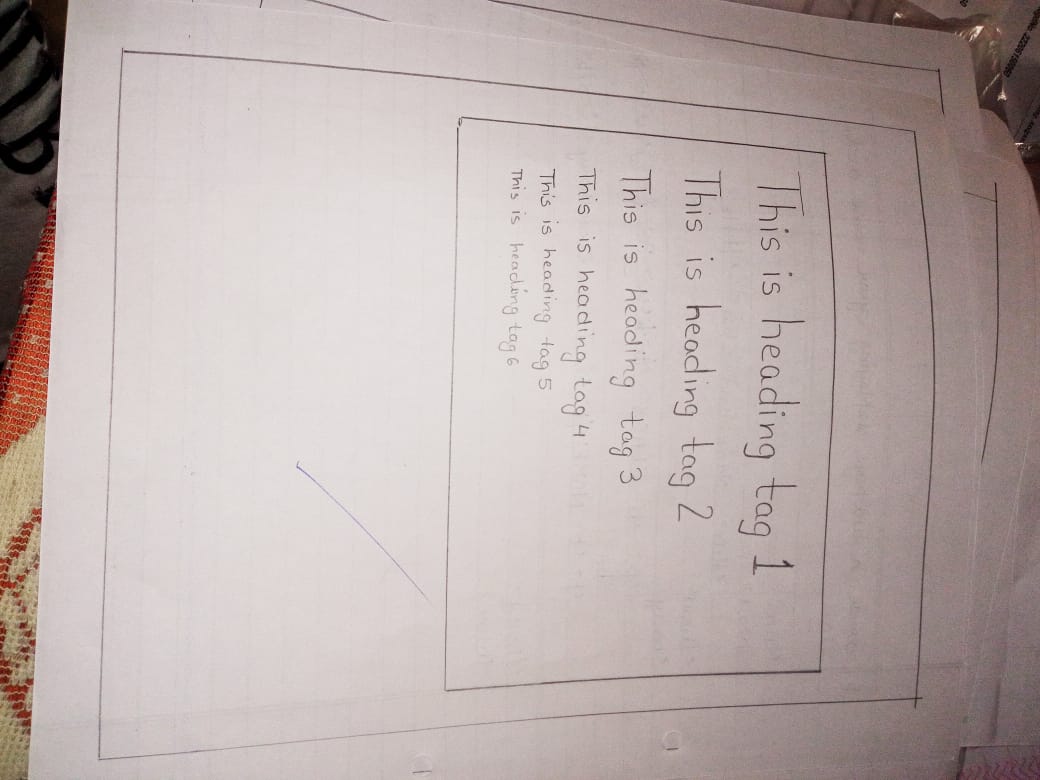 This is heading tag 1
This is heading tag 2
This is heading tag 3
This is heading tag 4
This is heading tag 5
This is heading tag 6